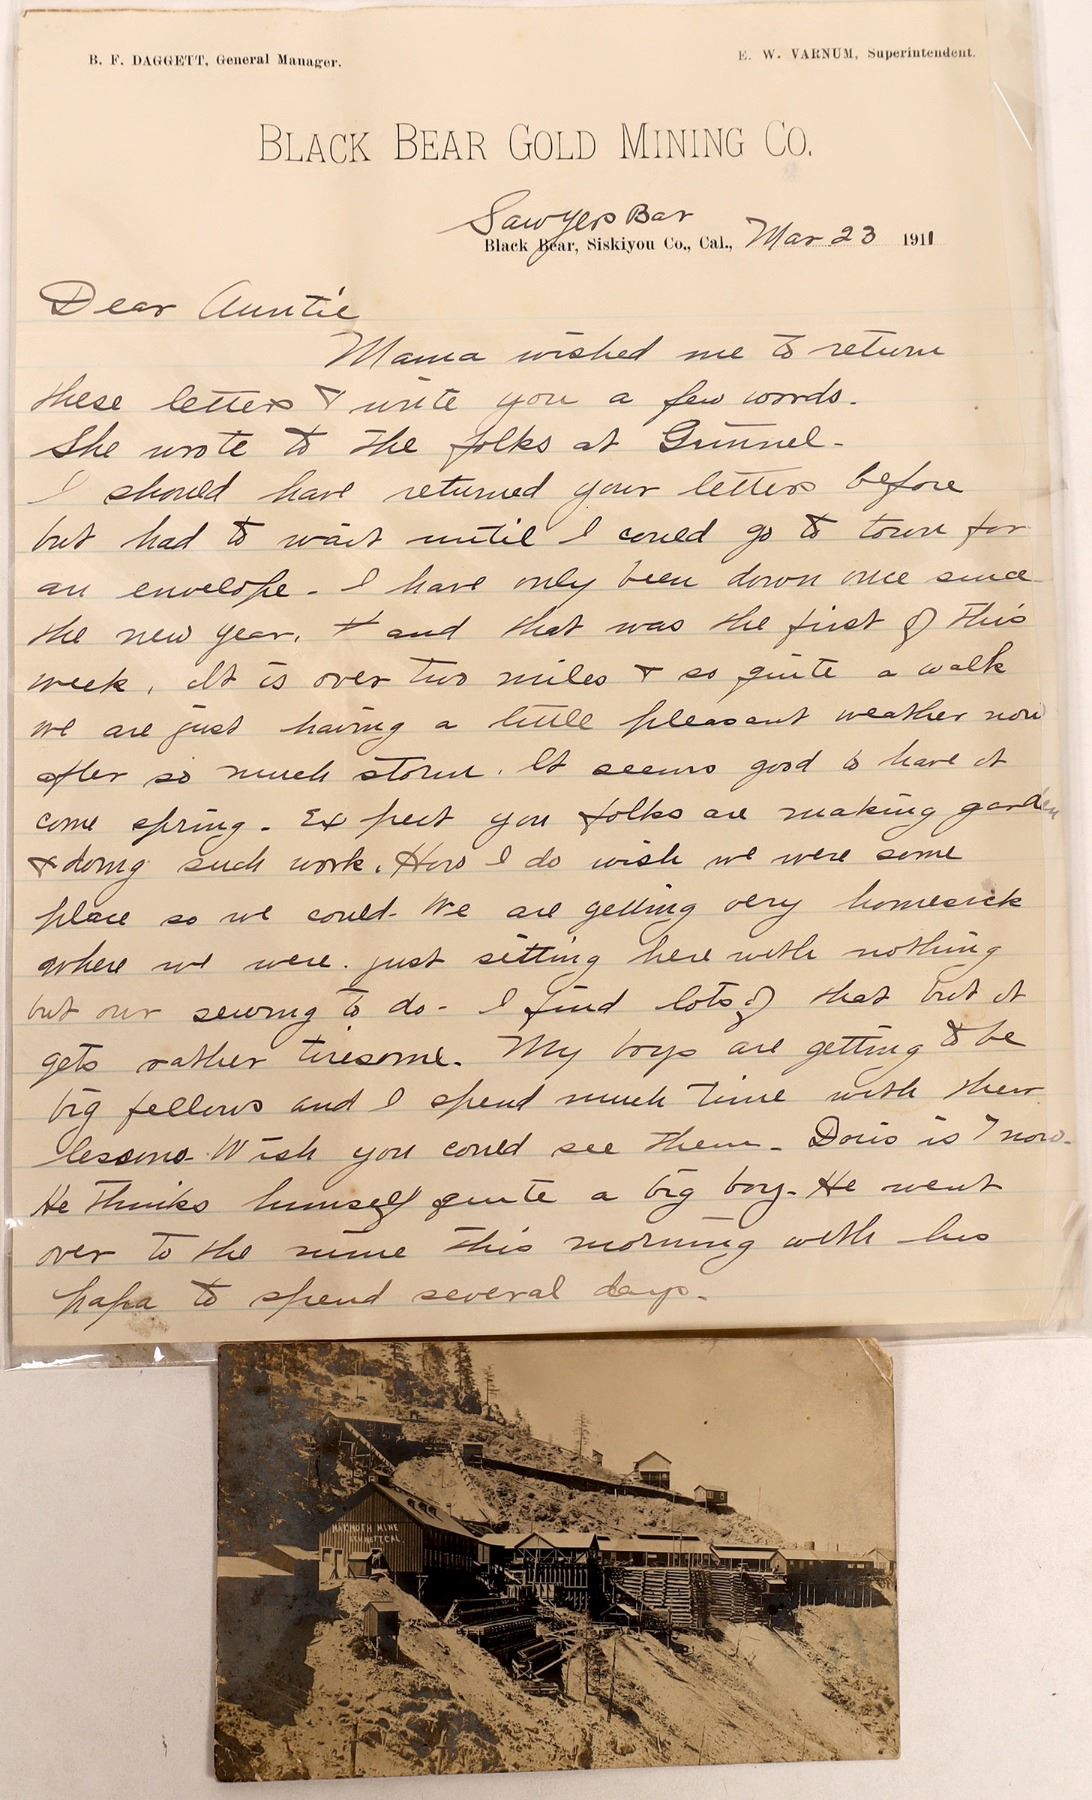 B. F. DAGGETT, General Manager.
E. W. VARNUM, Superintendent.
BLACK BEAR GOLD MINING CO.
Sawyers Bar
Black Bear, Siskiyou Co., Cal., Mar 23 1911
Dear Auntie
Mama wished me to return
these letters & write you a few words.
She wrote to the folks at Grinnel-
I should have returned your letters before
but had to wait until I could go to town for
an envelope - I have only been down once since
the new year, & and that was the first of this
week. It is over two miles & so quite a walk
we are just having a little pleasant weather now
after so much storm. It seems good to have it
come spring - Expect you folks are making garden
& doing such work. How I do wish we were some
place so we could - We are getting very homesick
where we were. just sitting here with nothing
but our sewing to do - I find lots of that but it
gets rather tiresome. My boys are getting to be
big fellows and I spend much time with their
lessons. Wish you could see them - Doris is 7 now.
He thinks himself quite a big boy - He went
over to the mine this morning with his
papa to spend several days.
MAMMOTH MINE
KENNETT CAL.